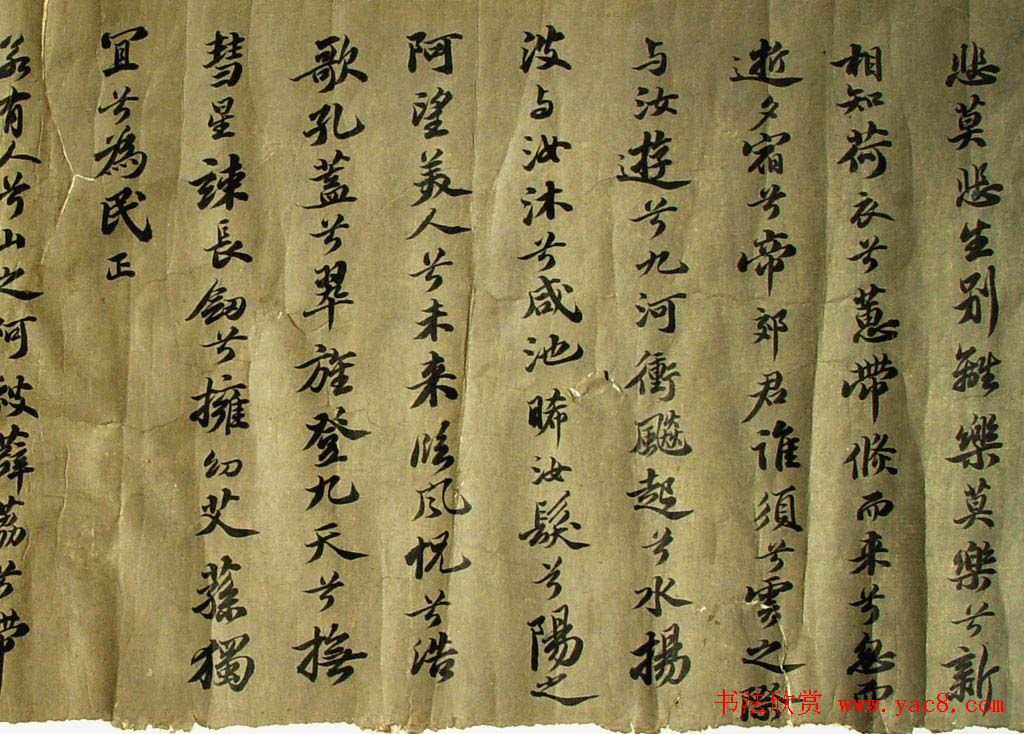 悲莫悲生别離樂莫樂兮新
相知荷衣兮蕙帶倏而来兮忽而
逝夕宿兮帝郊君誰須兮雲之際
与汝遊兮九河衝飈起兮水揚
波与汝沐兮咸池晞汝髮兮陽之
阿望美人兮未来臨風怳兮浩
歌孔蓋兮翠旌登九天兮撫
彗星竦長劔兮擁幼艾蓀獨
宜兮為民正
若有人兮山之阿被薜荔兮帶
书法欣赏 www.yac8.com